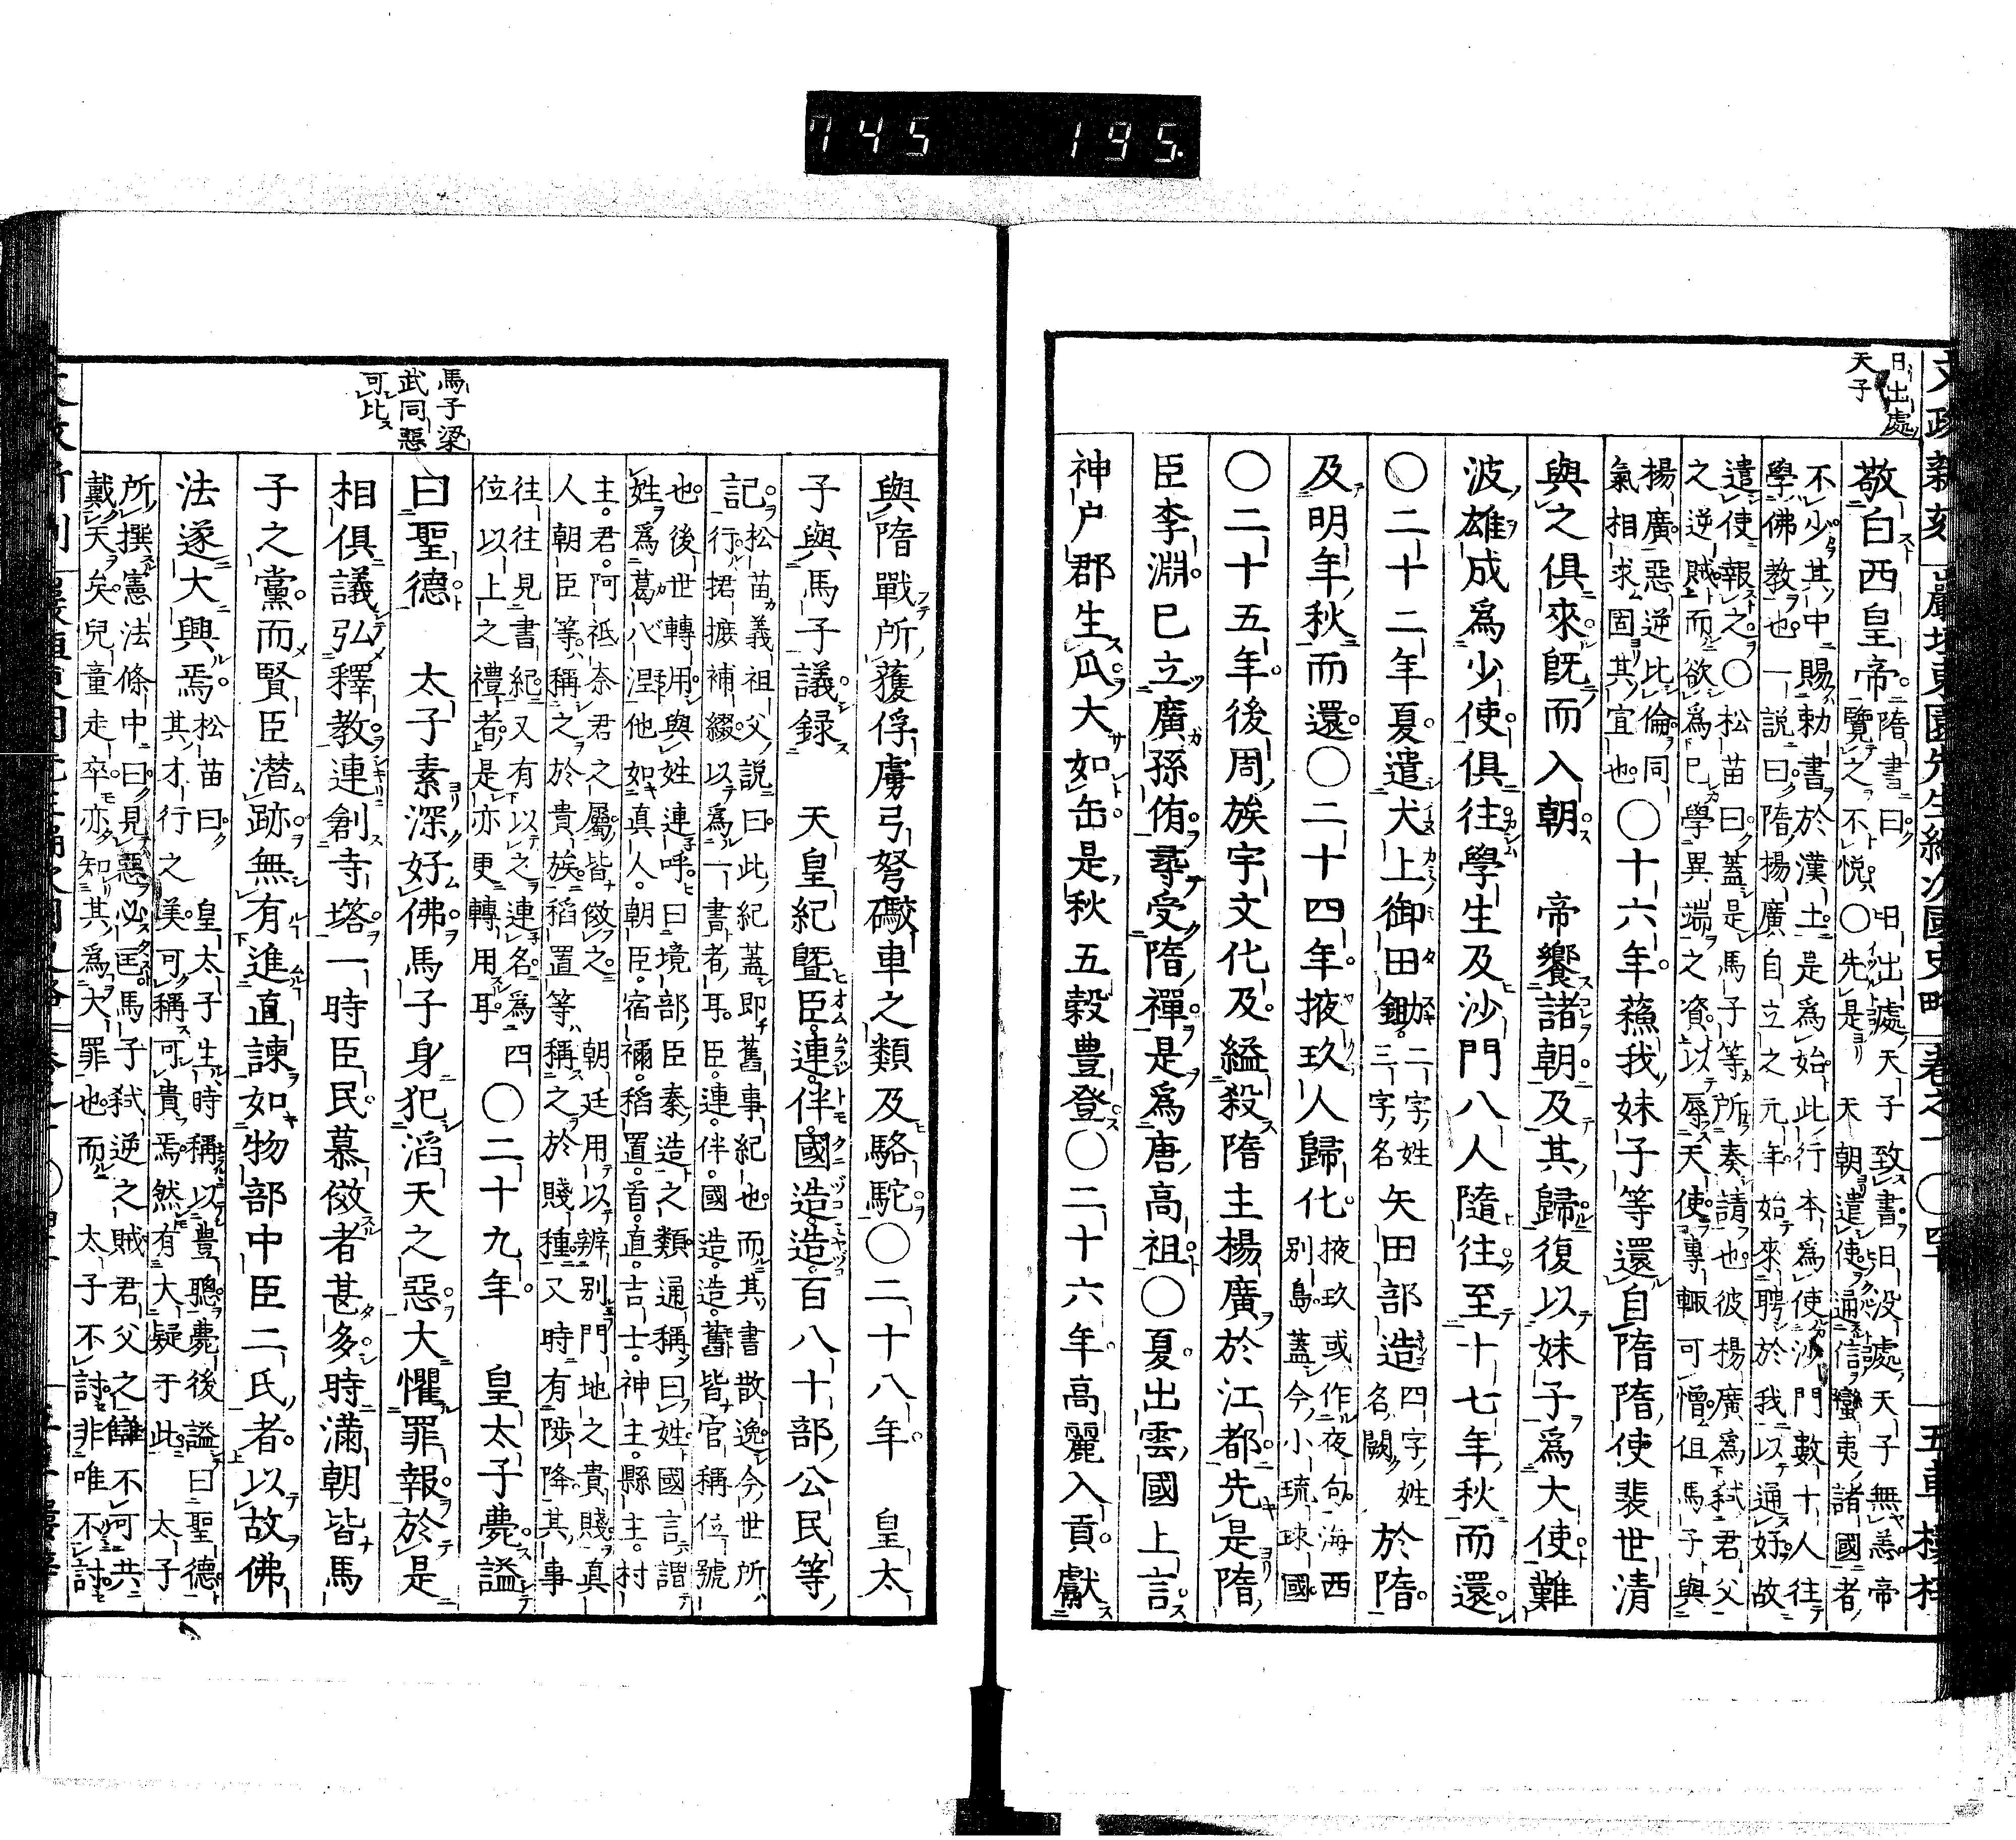 745 195.
日出處
天子
敬白西皇帝隋書曰日出處天子致書日沒處天子無恙帝
覽之不悦〇先是天朝遣使通信蠻夷諸國者
不少其中賜勅書於漢土是爲始此行本爲使沙門數十人往
學佛教也一說曰隋揚廣自立之元年始來聘於我以通好故
遣使報之〇松苗曰蓋是馬子等所奏請也彼楊廣爲弑君父
之逆賊而欲爲已學異端之資以辱天使專輙可憎但馬子與
楊廣惡逆比倫同
氣相求固其宜也〇十六年蘓我妹子等還自隋隋使裴世清
與之俱來旣而入朝　帝饗諸朝及其歸復以妹子爲大使難
波雄成爲少使俱往學生及沙門八人隨往至十七年秋而還
〇二十二年夏遣犬上御田鋤二字姓
三字名矢田部造四字姓
名闕於隋
及明年秋而還〇二十四年掖玖人歸化掖玖或作夜句海西
别島蓋今小琉球國
〇二十五年後周族宇文化及縊殺隋主楊廣於江都先是隋
臣李淵已立廣孫侑尋受隋禪是爲唐高祖〇夏出雲國上言
神户郡生瓜大如缶是秋五穀豊登〇二十六年高麗入貢獻
馬子梁
武同惡
可比
與隋戰所獲俘虜弓弩礮車之類及駱駝〇二十八年　皇太
子與馬子議録　天皇紀曁臣連伴國造造百八十部公民等
記松苗義祖父說曰此紀蓋即舊事紀也而其書散逸今世所
行捃摭補綴以爲一書者耳臣連伴國造造舊皆官稱位號
也後世轉用與姓連呼曰境部臣秦造之類通稱曰姓國言謂
姓爲葛八涅他如眞人朝臣宿禰稻置首直吉士神主縣主村
主君阿祗奈君之屬皆傚之　朝廷用以辨别門地之貴賤眞
人朝臣等稱之於貴族稻置等稱之於賤種又時有陟降其事
往往見書紀又有以之連名爲四
位以上之禮者是亦更轉用耳〇二十九年　皇太子薨謚
曰聖德　太子素深好佛馬子身犯滔天之惡大懼罪報於是
相俱議弘釋教連創寺塔一時臣民慕傚者甚多時滿朝皆馬
子之黨而賢臣潜跡無有進直諫如物部中臣二氏者以故佛
法遂大興焉松苗曰　皇太子生時稱以豊聰薨後謚曰聖德
其才行之美可稱可貴焉然有大疑于此　太子
所撰憲法條中曰見惡必匡馬子弑逆之賊君父之讎不可共
戴天矣兒童走卒亦知其爲大罪也而　太子不討非唯不討